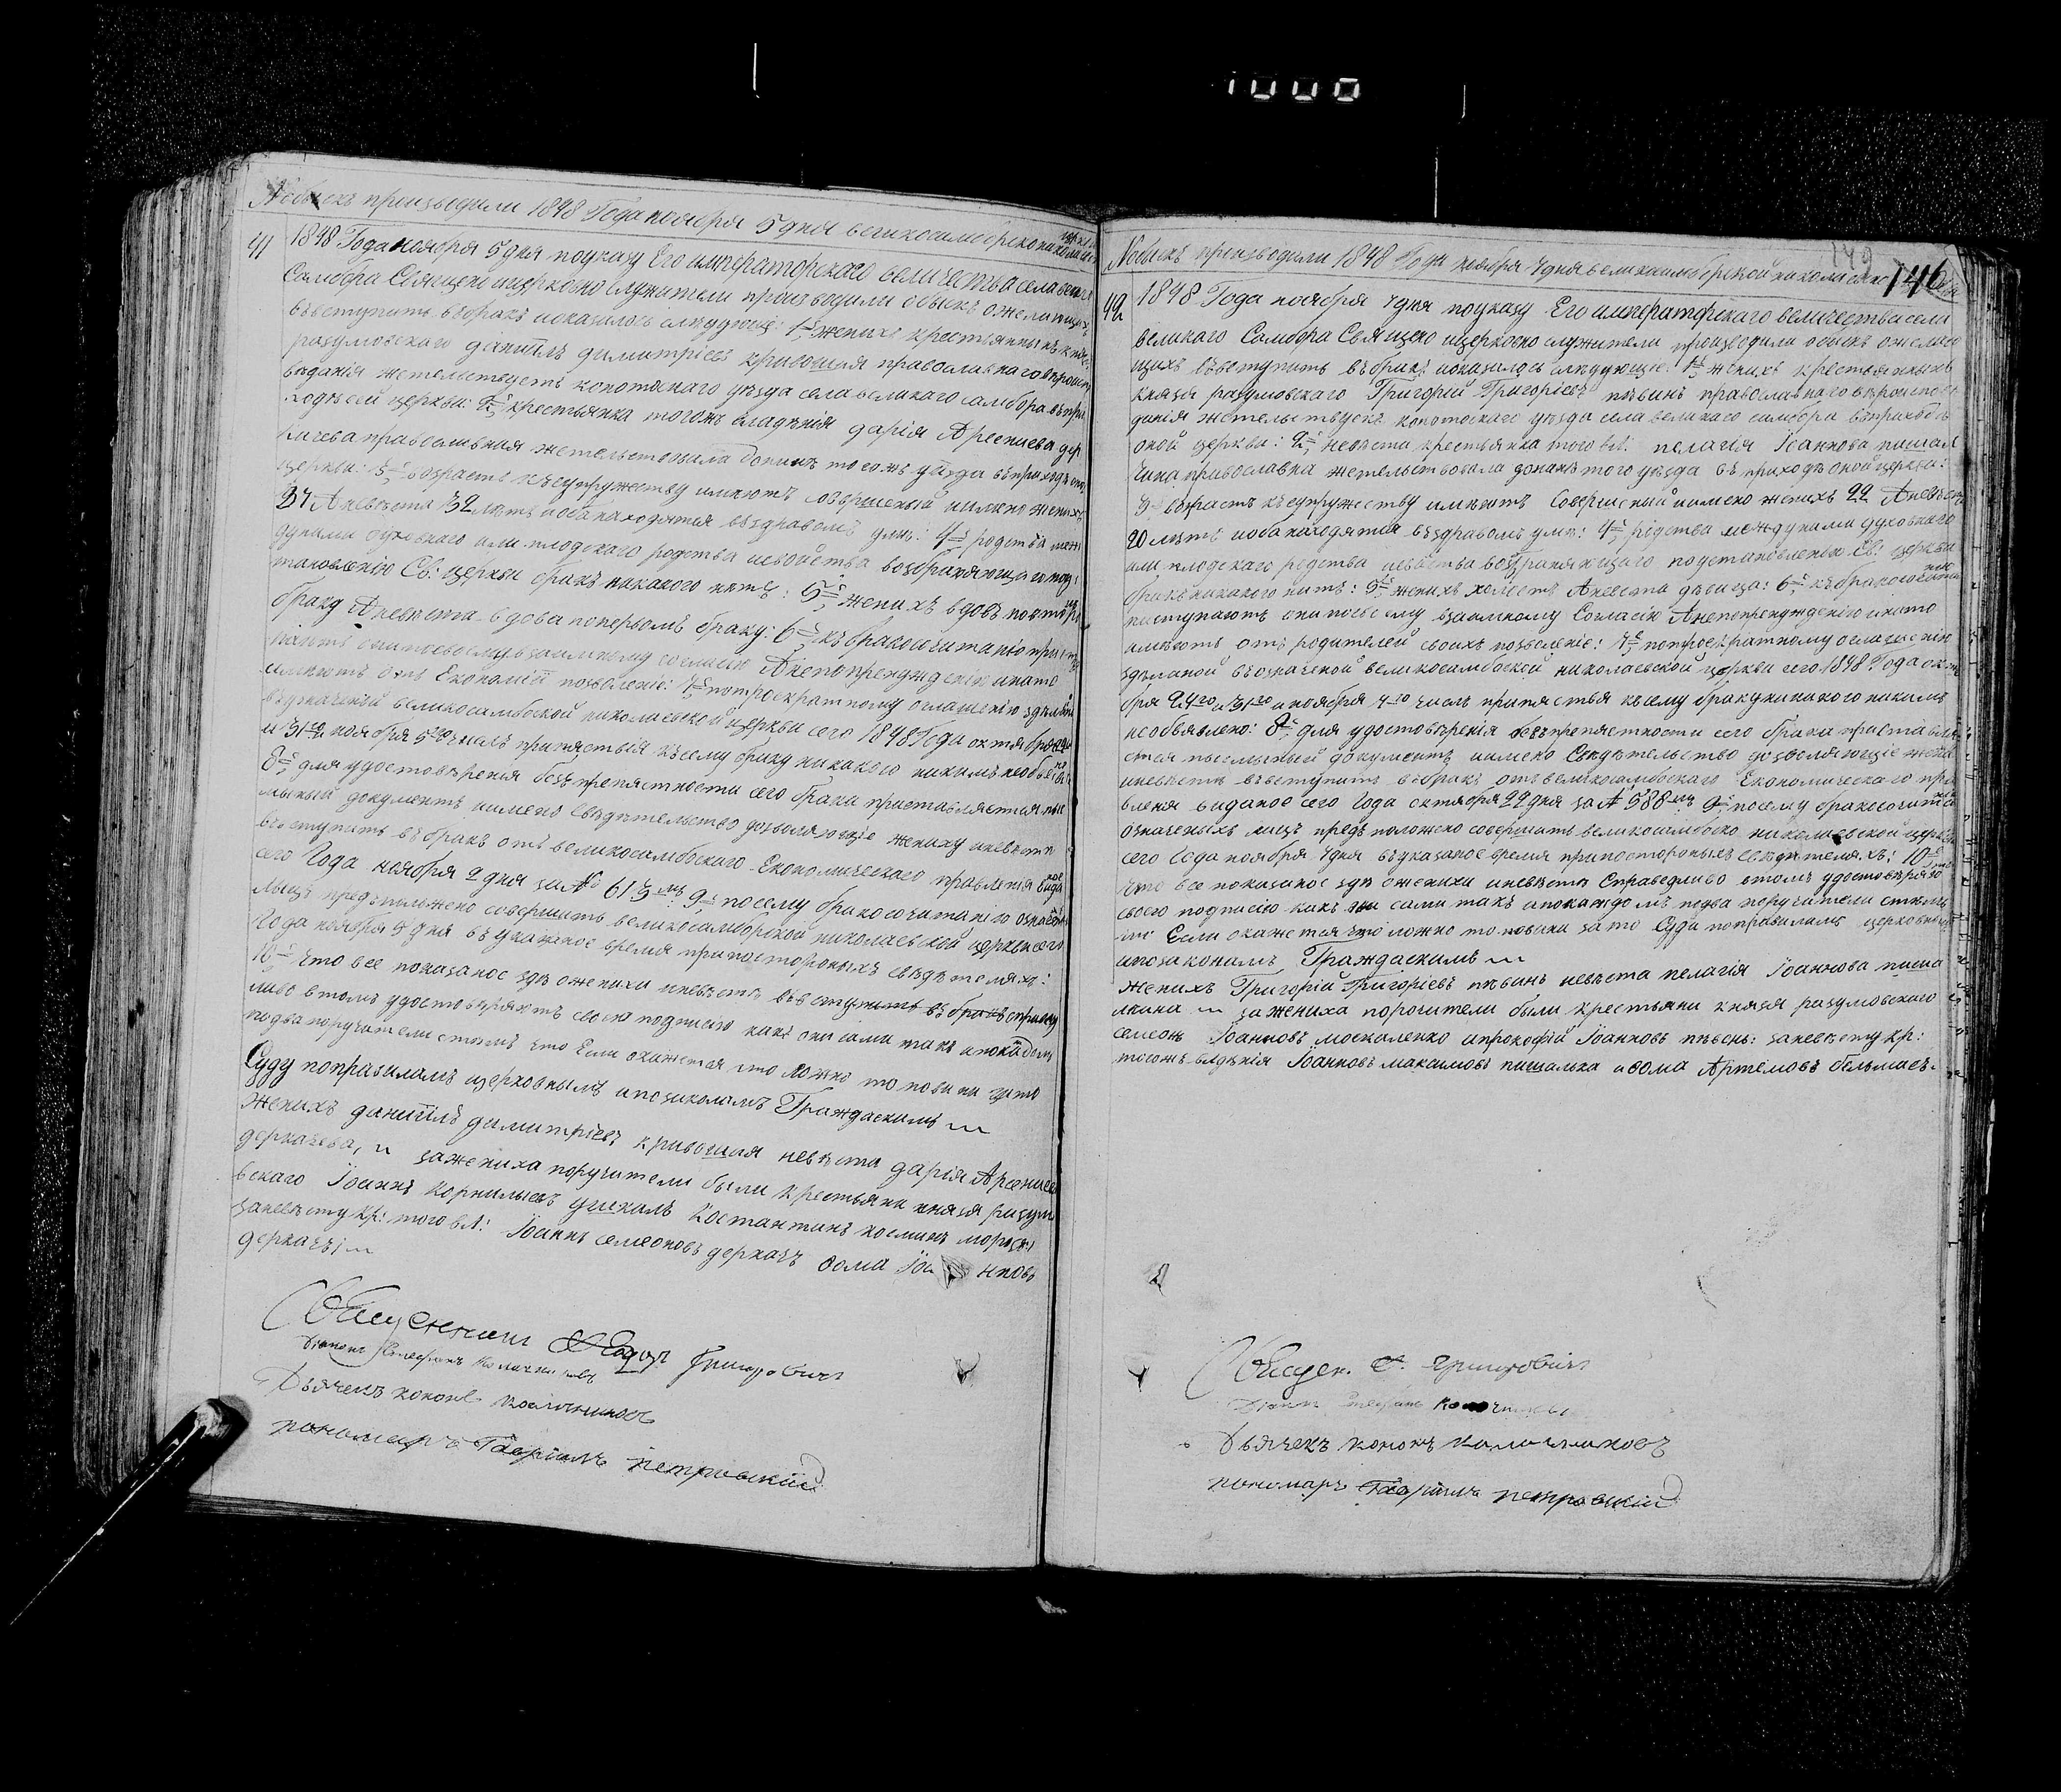 1000
№ обыскъ производили 1848 Года ноября 5 дня великосамборско николаевс церкви
41 1848 Года ноября 5 дня поуказу Его императорского величества села великаго
Самбора Священо ицерковно служители производили обыскъ ожелающихъ
въвступить въбракъ иоказалось слѣдующіе: 1е, женихъ крестьянинъ князя
разумовскаго даніилъ димитріевъ кривошия православнаго вѣроиспо
веданія жетельствуетъ конотопкаго уѣзда села великаго самбора въпри
ходѣ сей церкви: 2е, крестьянка тогожъ владѣнія дарія Арсениева дер
качева православная жетельствовала донинѣ тогожъ уѣзда въприходѣ сей
церкви: 3е, возрастъ късупружеству имѣютъ совершеный иимено женихъ
37 Аневѣста 32 лѣтъ иоба находятся въздравомъ умѣ: 4е, родства меж
дуними духовнаго или плодскаго родства исвойства возбраняющаго поус
тановленію Св: церкви бракъ никакого нѣтъ: 5е, женихъ вдовъ повтором
браку Аневѣста вдова поперьвомъ браку: 6е, къбракосочитанію присту
паютъ они посвоему взаимному согласію Анепопренужденію инато
имѣютъ отъ Економіи позволеніе: 7е, потроекратному оглашенію зделаной
въозначеной великосамбоской николаевской церкви сего 1848 Года октября 24
и 31го ноября 5го числъ припятствія късему браку никакого никимъ необъявлено
8е, для удостовѣренія безъпрепятности сего брака приставляется пис
мыный документъ иимено Свѣдетельство дозволяющіе жениху иневѣсте
въвступить въбракъ отъ великосамбоскаго Економического правленія видано
сего Года ноября 2 дня за № 613мъ 9е, посему бракосочитаніго означеныхъ
лицъ предположено совершить великосамборской николаевской церкви сего
Года ноября 5 дня въуказаное время припосторонихъ свѣдетеляхъ:
10е, что все показаное здѣ ожениху иневѣсте въвступить въбракъ справед
ливо втомъ удостовѣряютъ своею подписію какъ они сами такъ ипокаждомъ
подва поручители стѣмъ что Если окажется что ложно то повини зато
Суду поправиламъ церковнымъ ипозаконамъ Граждаскимъ
Женихъ даніилъ димитріевъ кривошия невѣста дарія Арсениева
деркачева, зажениха поручители были крестьяни князя разумо
вскаго Іоаннъ корнильевъ Костантинъ косминъ
заневѣсту кр: того вл: Іоаннъ семеоновъ деркачъ вома Іоанновъ
деркачъ
Священикъ Ѳедоръ Григоровичъ
Діаконъ Стефанъ Колачниковъ
Дьячекъ кононъ Колачниковъ
пономарь Гавріилъ петровскій
149
146
№ обыскъ производили 1848 Года ноября 7 дня великосамборской николаевско
42 1848 Года ноября 7 дня поуказу Его императорского величества села
великаго Самбора Священо ицерковно служители производили обыскъ ожелаю
щихъ въвступить въбракъ иоказалось слѣдующіе: 1е, женихъ крестьянинъ
князя разумовскаго Григорій Григоріевъ пѣвинъ православнаго вѣроиспове
данія жетельствуетъ конотоскаго уѣзда села великаго самбора въприходѣ
оной церкви: 2е, невѣста крестьянка того вл: пелагія Іоаннова пишал
кина православна жетельствовала донинѣ того уѣзда въ приходѣ оной церкви:
3е, возрастъ късупружеству имѣютъ Совершеный иимено женихъ 22 Аневѣста
20 лѣтъ иоба находятся въздравомъ умѣ: 4е, родства междуними духовнаго
или плодскаго родства исвойства возбраняющаго поустановленію Св: церкви
бракъ никакого нитъ: 5е, женихъ холостъ Аневеста дѣвица: 6е, къбракосочитанію
пиступаютъ они посвоему взаимному Согласію Анепопренужденію инато
имѣютъ отъ родителей своихъ позволеніе: 7е, потроекратному оглашенію
зделаной въозначеной великосамбоской николаевской церкви сего 1848 Года октя
бря 24го и 31го и ноября 7го числъ припятствія късему браку никакого никимъ
необявлено: 8е, для удостовѣренія безъпрепятности сего брака приставля
ется писмыный документъ иимено Свѣдетельство дозволяющіе жениху
иневѣстѣ въвступить въбракъ отъ великосамбоскаго Економического пра
вленя виданое сего Года октября 22 дня за № 588мъ 9е, посему бракосочитанія
означеныхъ лицъ предъположено совершить великосамбоско николаевской церкви
сего Года ноября 7 дня въуказаное время припосторонымъ свѣдителяхъ: 10е,
что все показаное здѣ ожениху иневѣстѣ Справедливо втомъ удостовѣряю
своею подписію какъ они сами такъ ипокаждомъ подва поручители стѣмъ
что Если окажется что ложно то повини зато Суду поправиламъ церковнымъ
ипозаконамъ Граждаскимъ
женихъ Григорій Григоріевъ пѣвинъ невѣста пелагія Іоаннова пиша
лкина зажениха поручители были крестьяни князя разумовскаго
семеонъ Іоанновъ москаленко ипрокофій Іоанновъ пѣвень: заневѣсту кр:
тогожъ влдѣнія Іоанновъ максимовъ пишалка ивома Артемовъ бельмасъ.
Священ. Ѳ. Григоровичъ
Діаконъ Стефанъ Колачниковъ
Дьячекъ кононъ Калачниковъ
пономарь Гавріилъ петровскій